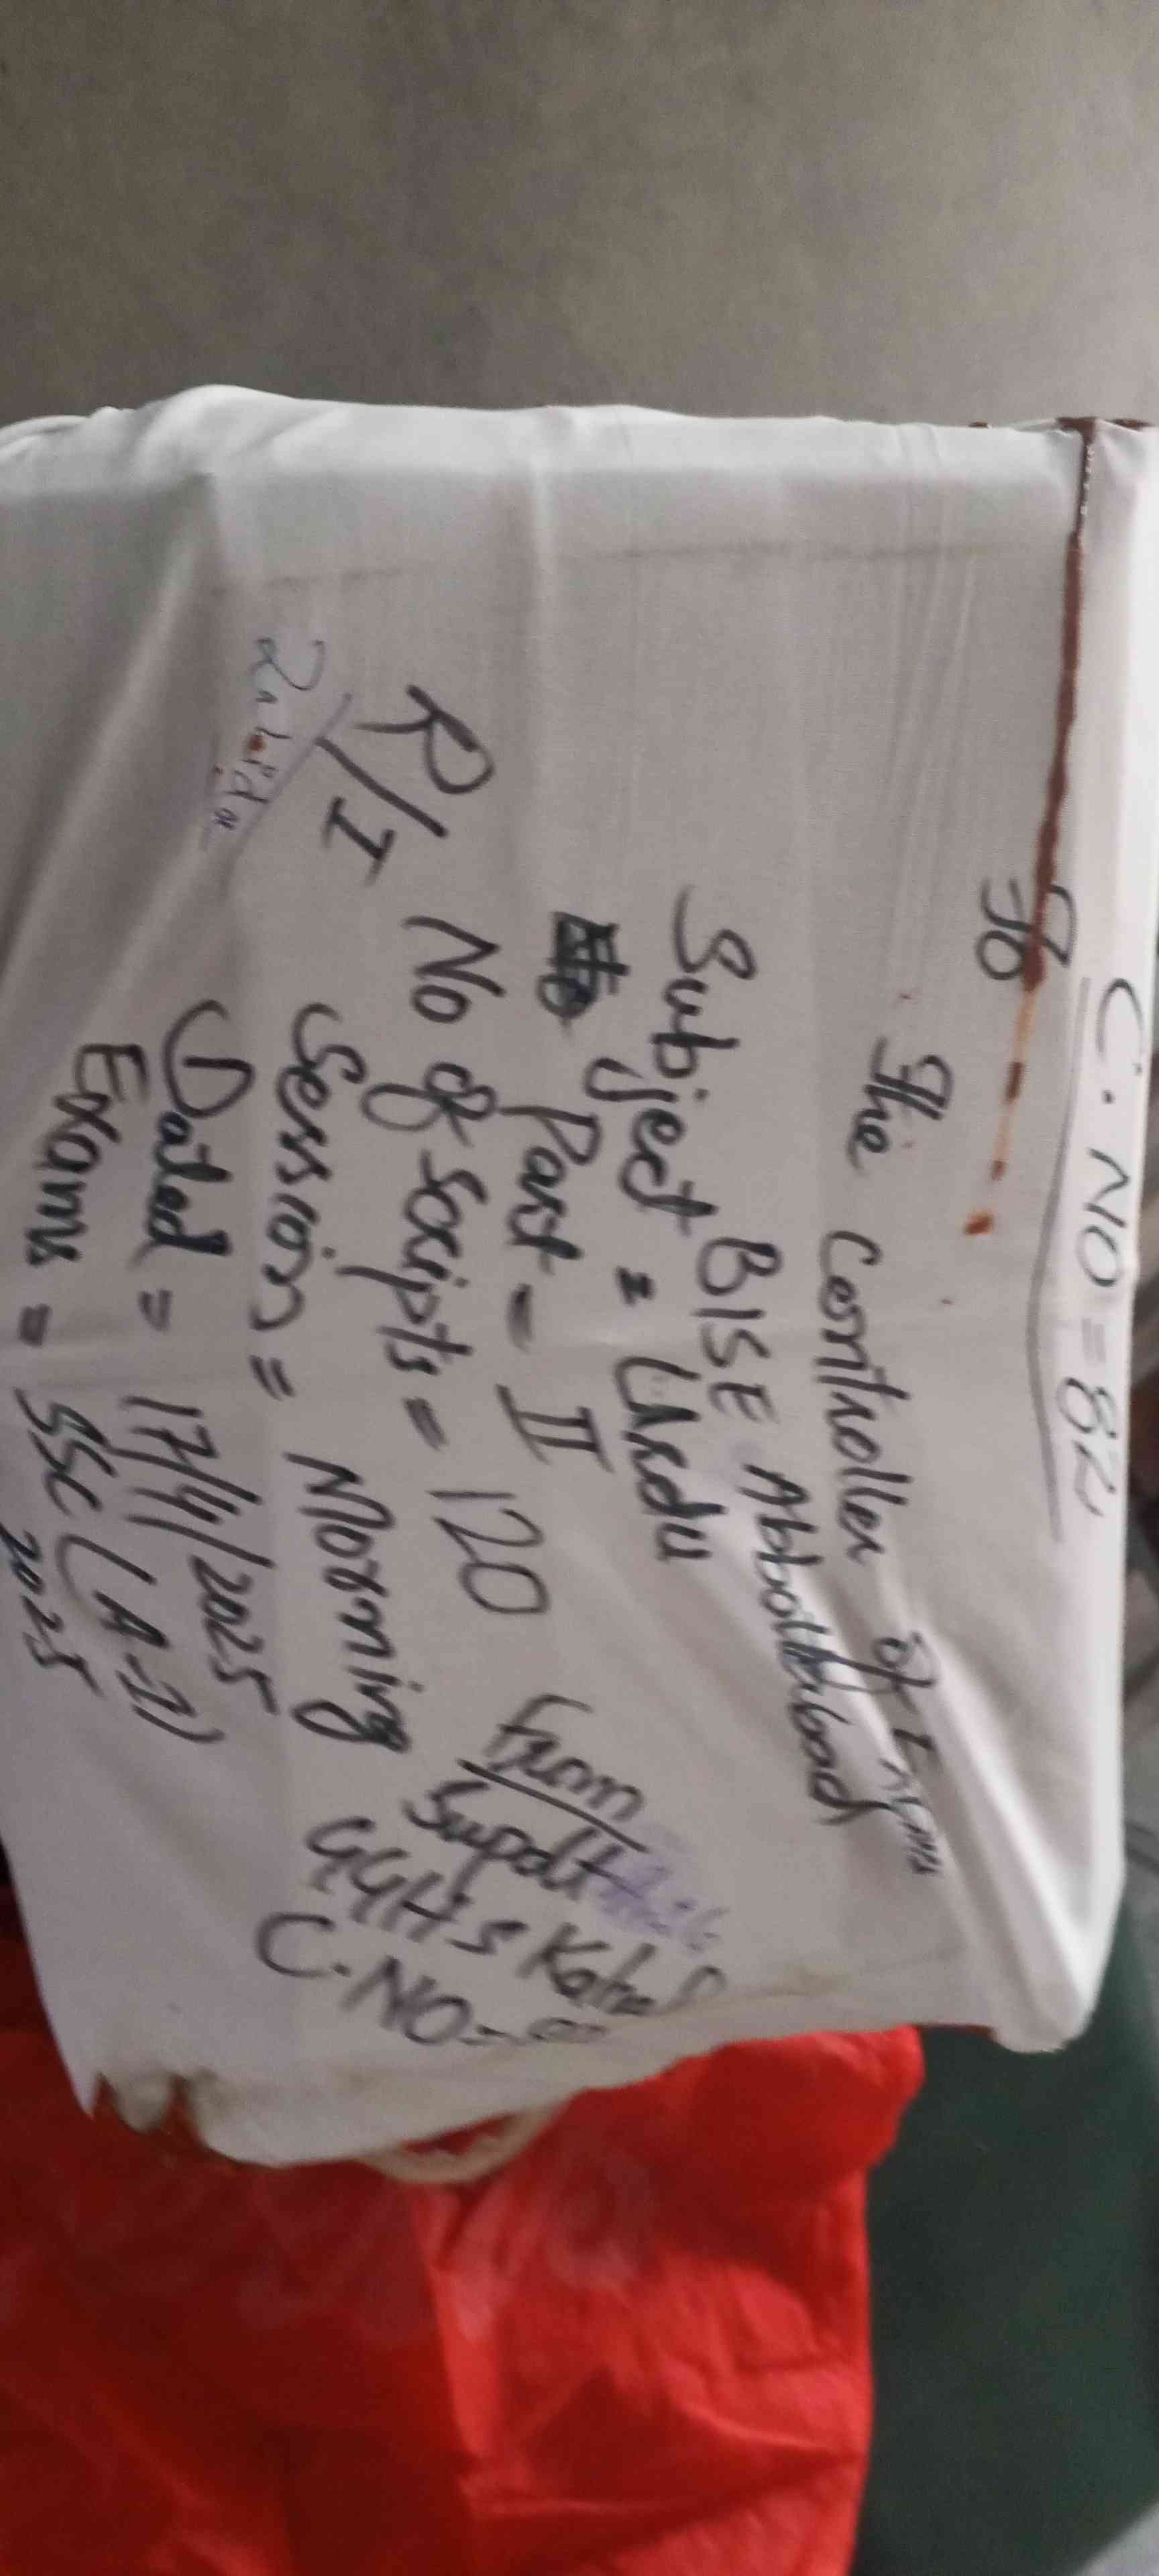 C.NO = 82
To
The Controller of Exams
BISE Abbottabad
Subject = Urdu
Part - II
No of Scripts = 120
R/I
Zabida
Session = Morning
Dated = 17/4/2025
Exams = SSC (A-I)
2025
From
Supdtt
GGHS
C.NO =